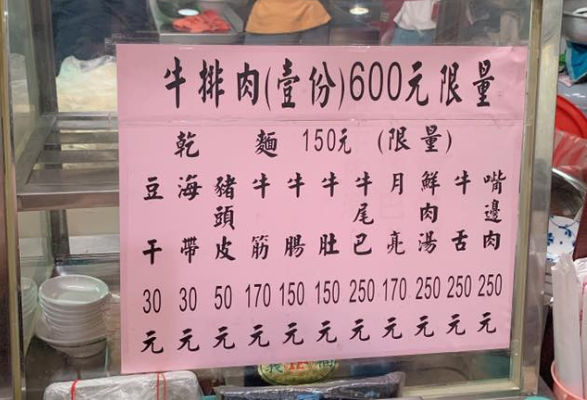 牛排肉(壹份)600元限量
乾麵 150元 (限量)
嘴邊肉 250元
牛舌 250元
鮮肉湯 250元
月亮 170元
牛尾巴 250元
牛肚 150元
牛腸 150元
牛筋 170元
豬頭皮 50元
海帶 30元
豆干 30元